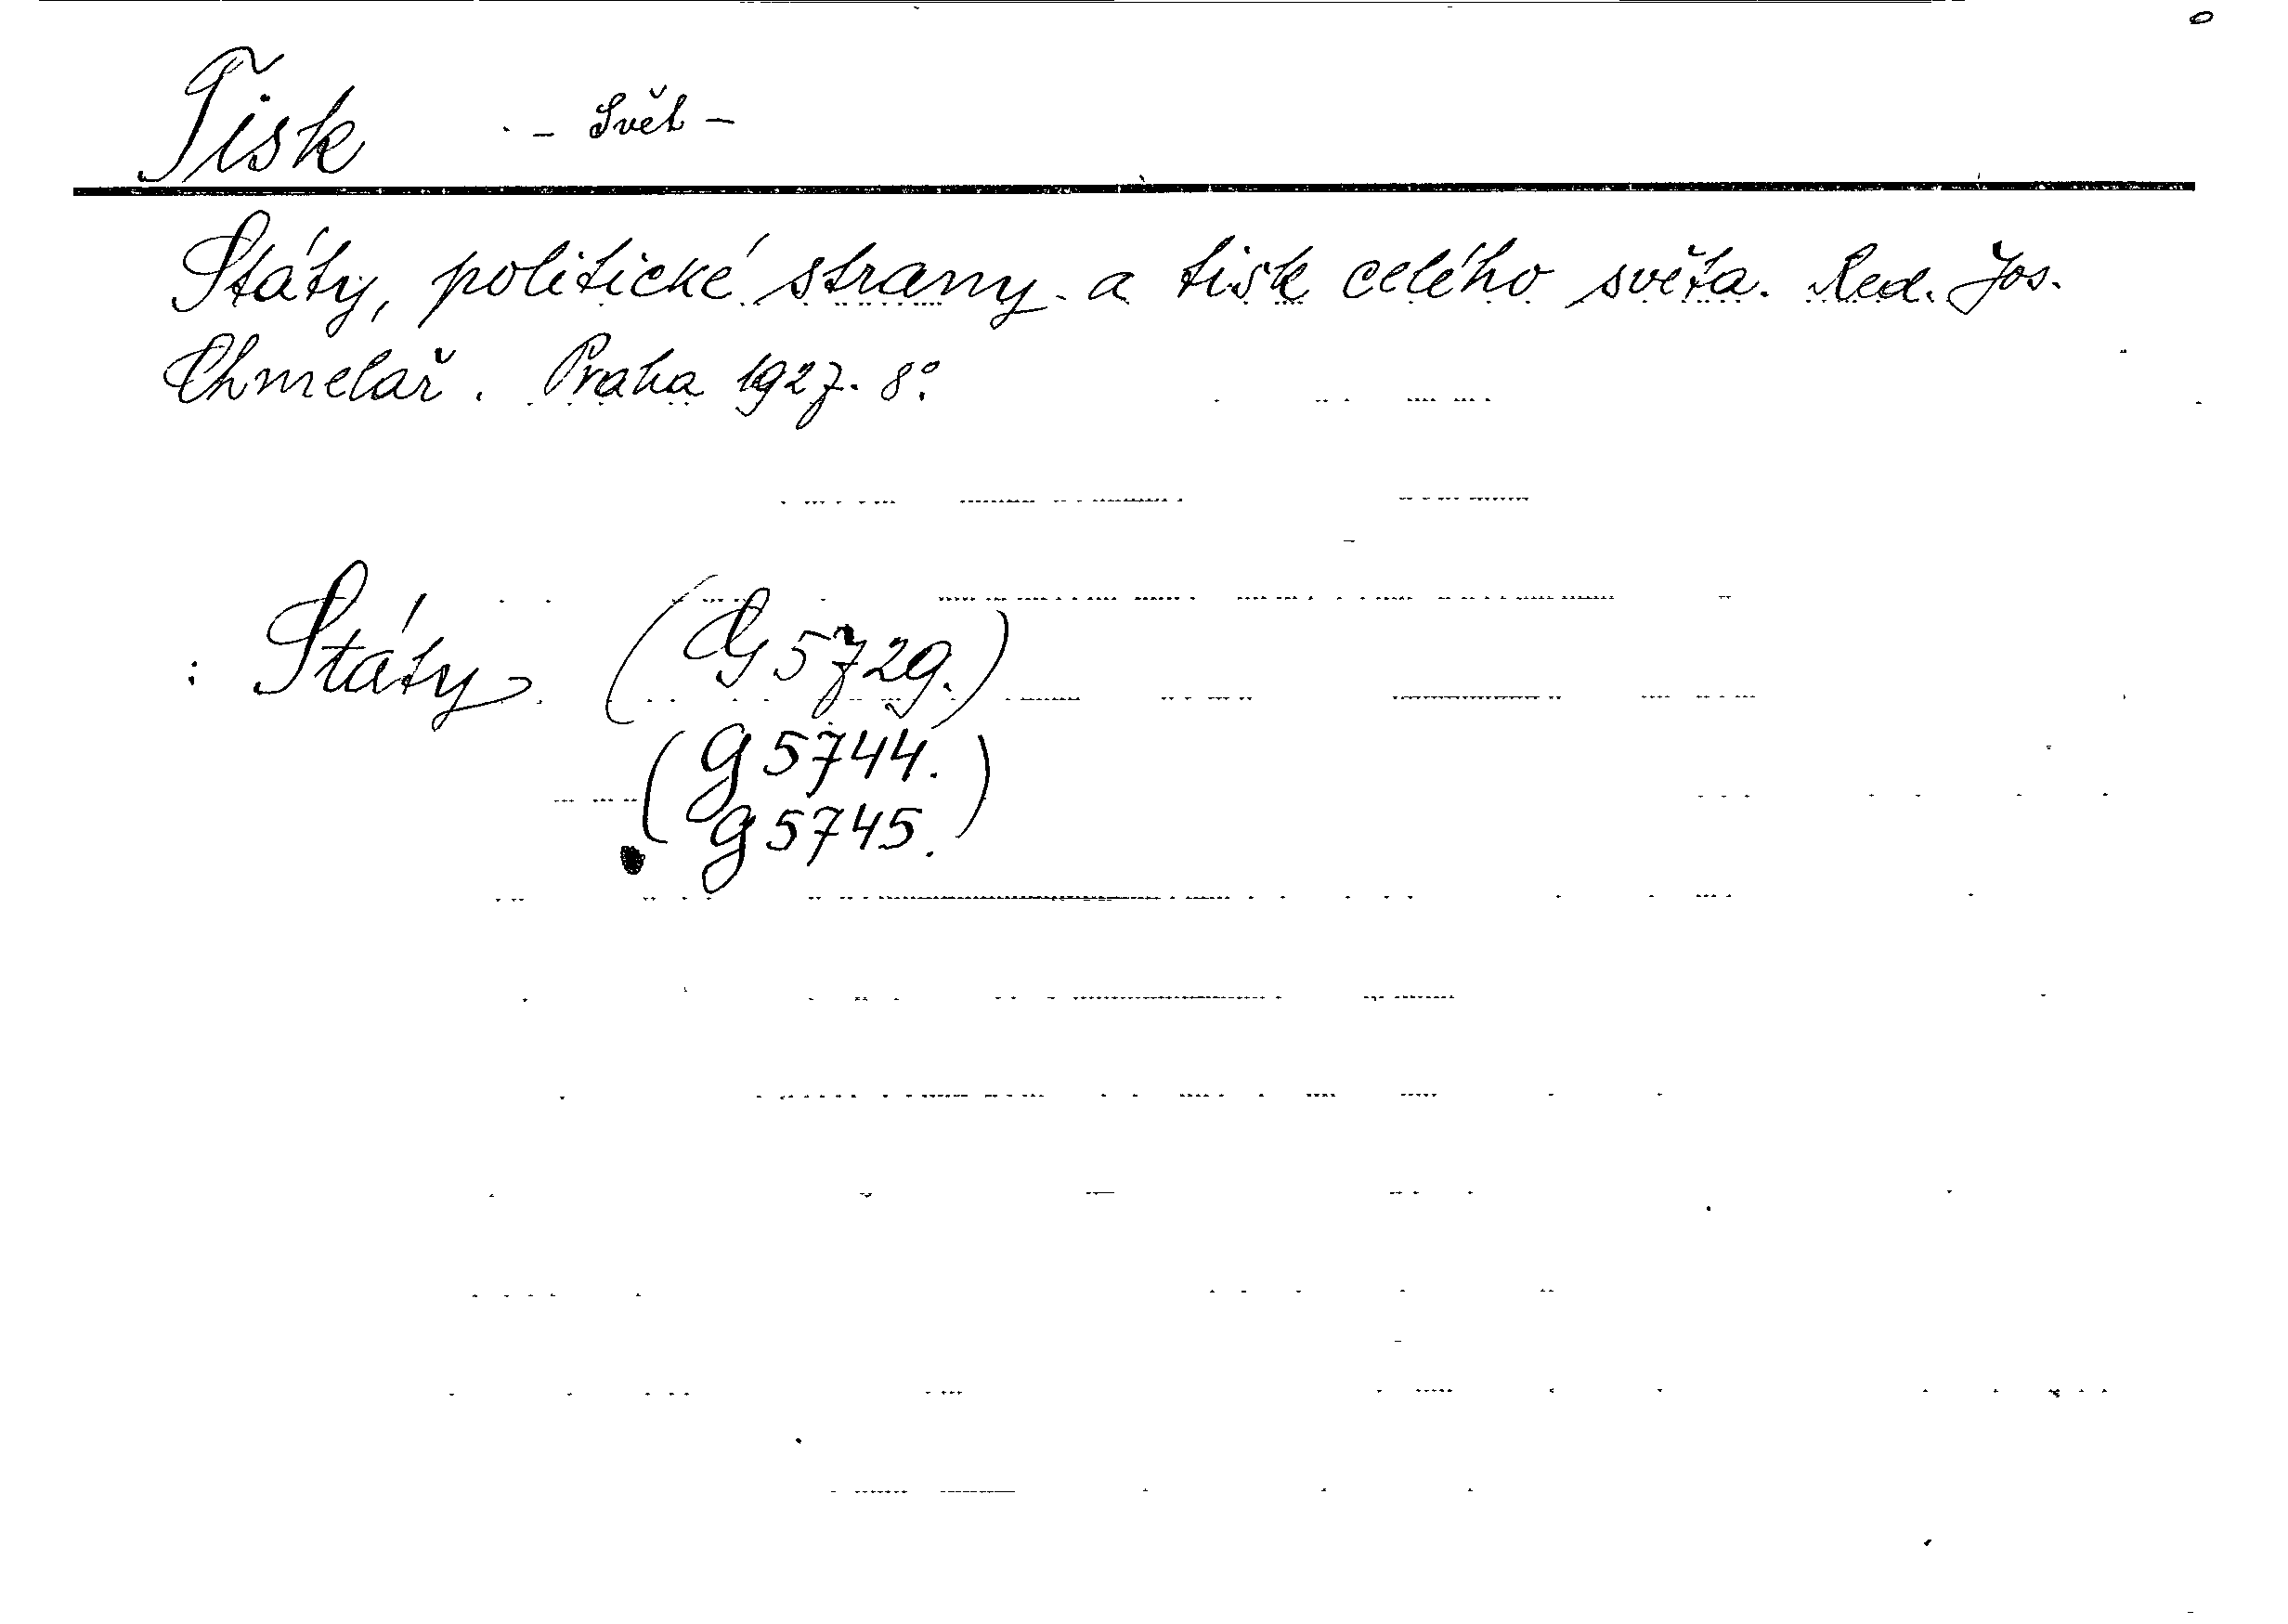 Tisk - Svět -
Státy, politické strany a tisk celého světa. Red. Jos.
Chmelař. Praha 1927. 8°.
: Státy (G 5729.)
(g 5744.
g 5745.)